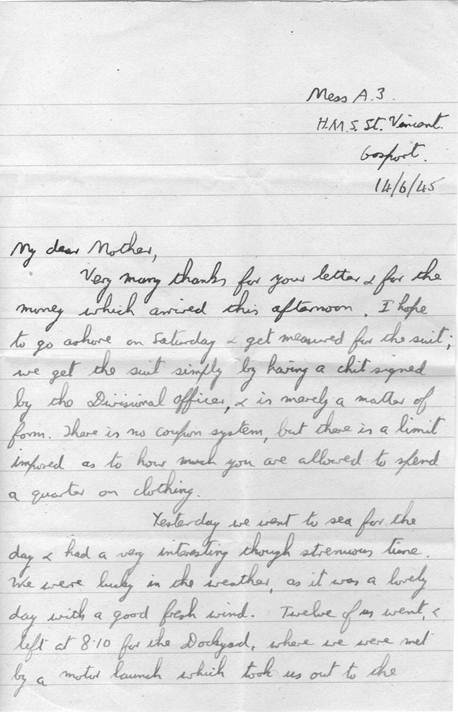 Mess A.3.
H.M.S. St. Vincent.
Gosport.
14/6/45
My dear Mother,
Very many thanks for your letter & for the
money which arrived this afternoon. I hope
to go ashore on Saturday & get measured for the suit;
we get the suit simply by having a chit signed
by the Divisional Officer, & is merely a matter of
form. There is no coupon system, but there is a limit
imposed as to how much you are allowed to spend
a quarter on clothing.
Yesterday we went to sea for the
day & had a very interesting though strenuous time.
We were lucky in the weather, as it was a lovely
day with a good fresh wind. Twelve of us went, &
left at 8.10 for the Dockyard, where we were met
by a motor launch which took us out to the